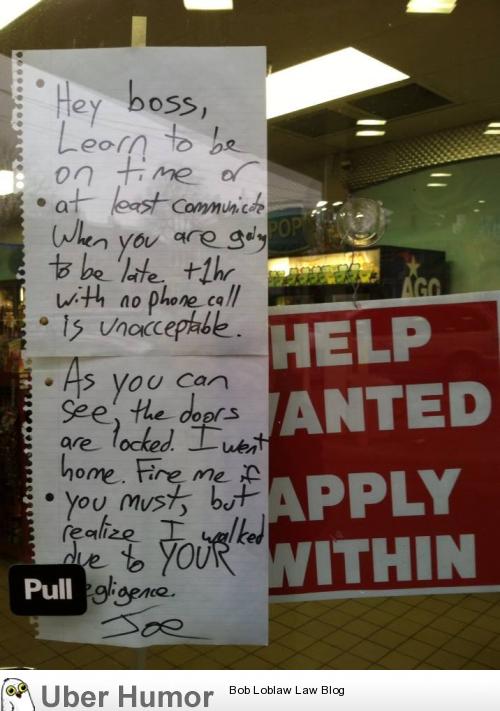 Hey boss,
Learn to be
on time or
at least communicate
when you are going
to be late. +1hr
with no phone call
is unacceptable.
As you can
see, the doors
are locked. I went
home. Fire me if
you must, but
realize I walked
due to YOUR
egligence.
Joe
Pull
POP
AGO
HELP
ANTED
APPLY
WITHIN
Uber Humor
Bob Loblaw Law Blog